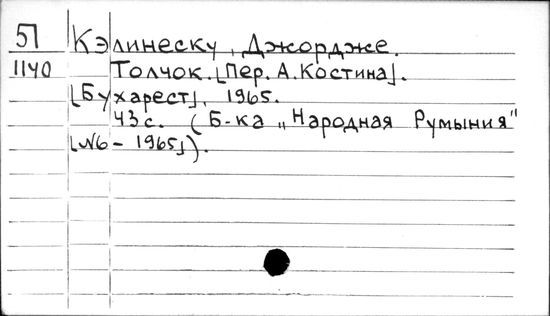 57 Кэлинеску, Джордже.
1140 Толчок. [Пер. А. Костина].
[Бухарест], 1965.
43 с. (Б-ка „Народная Румыния"
[№6 - 1965]).